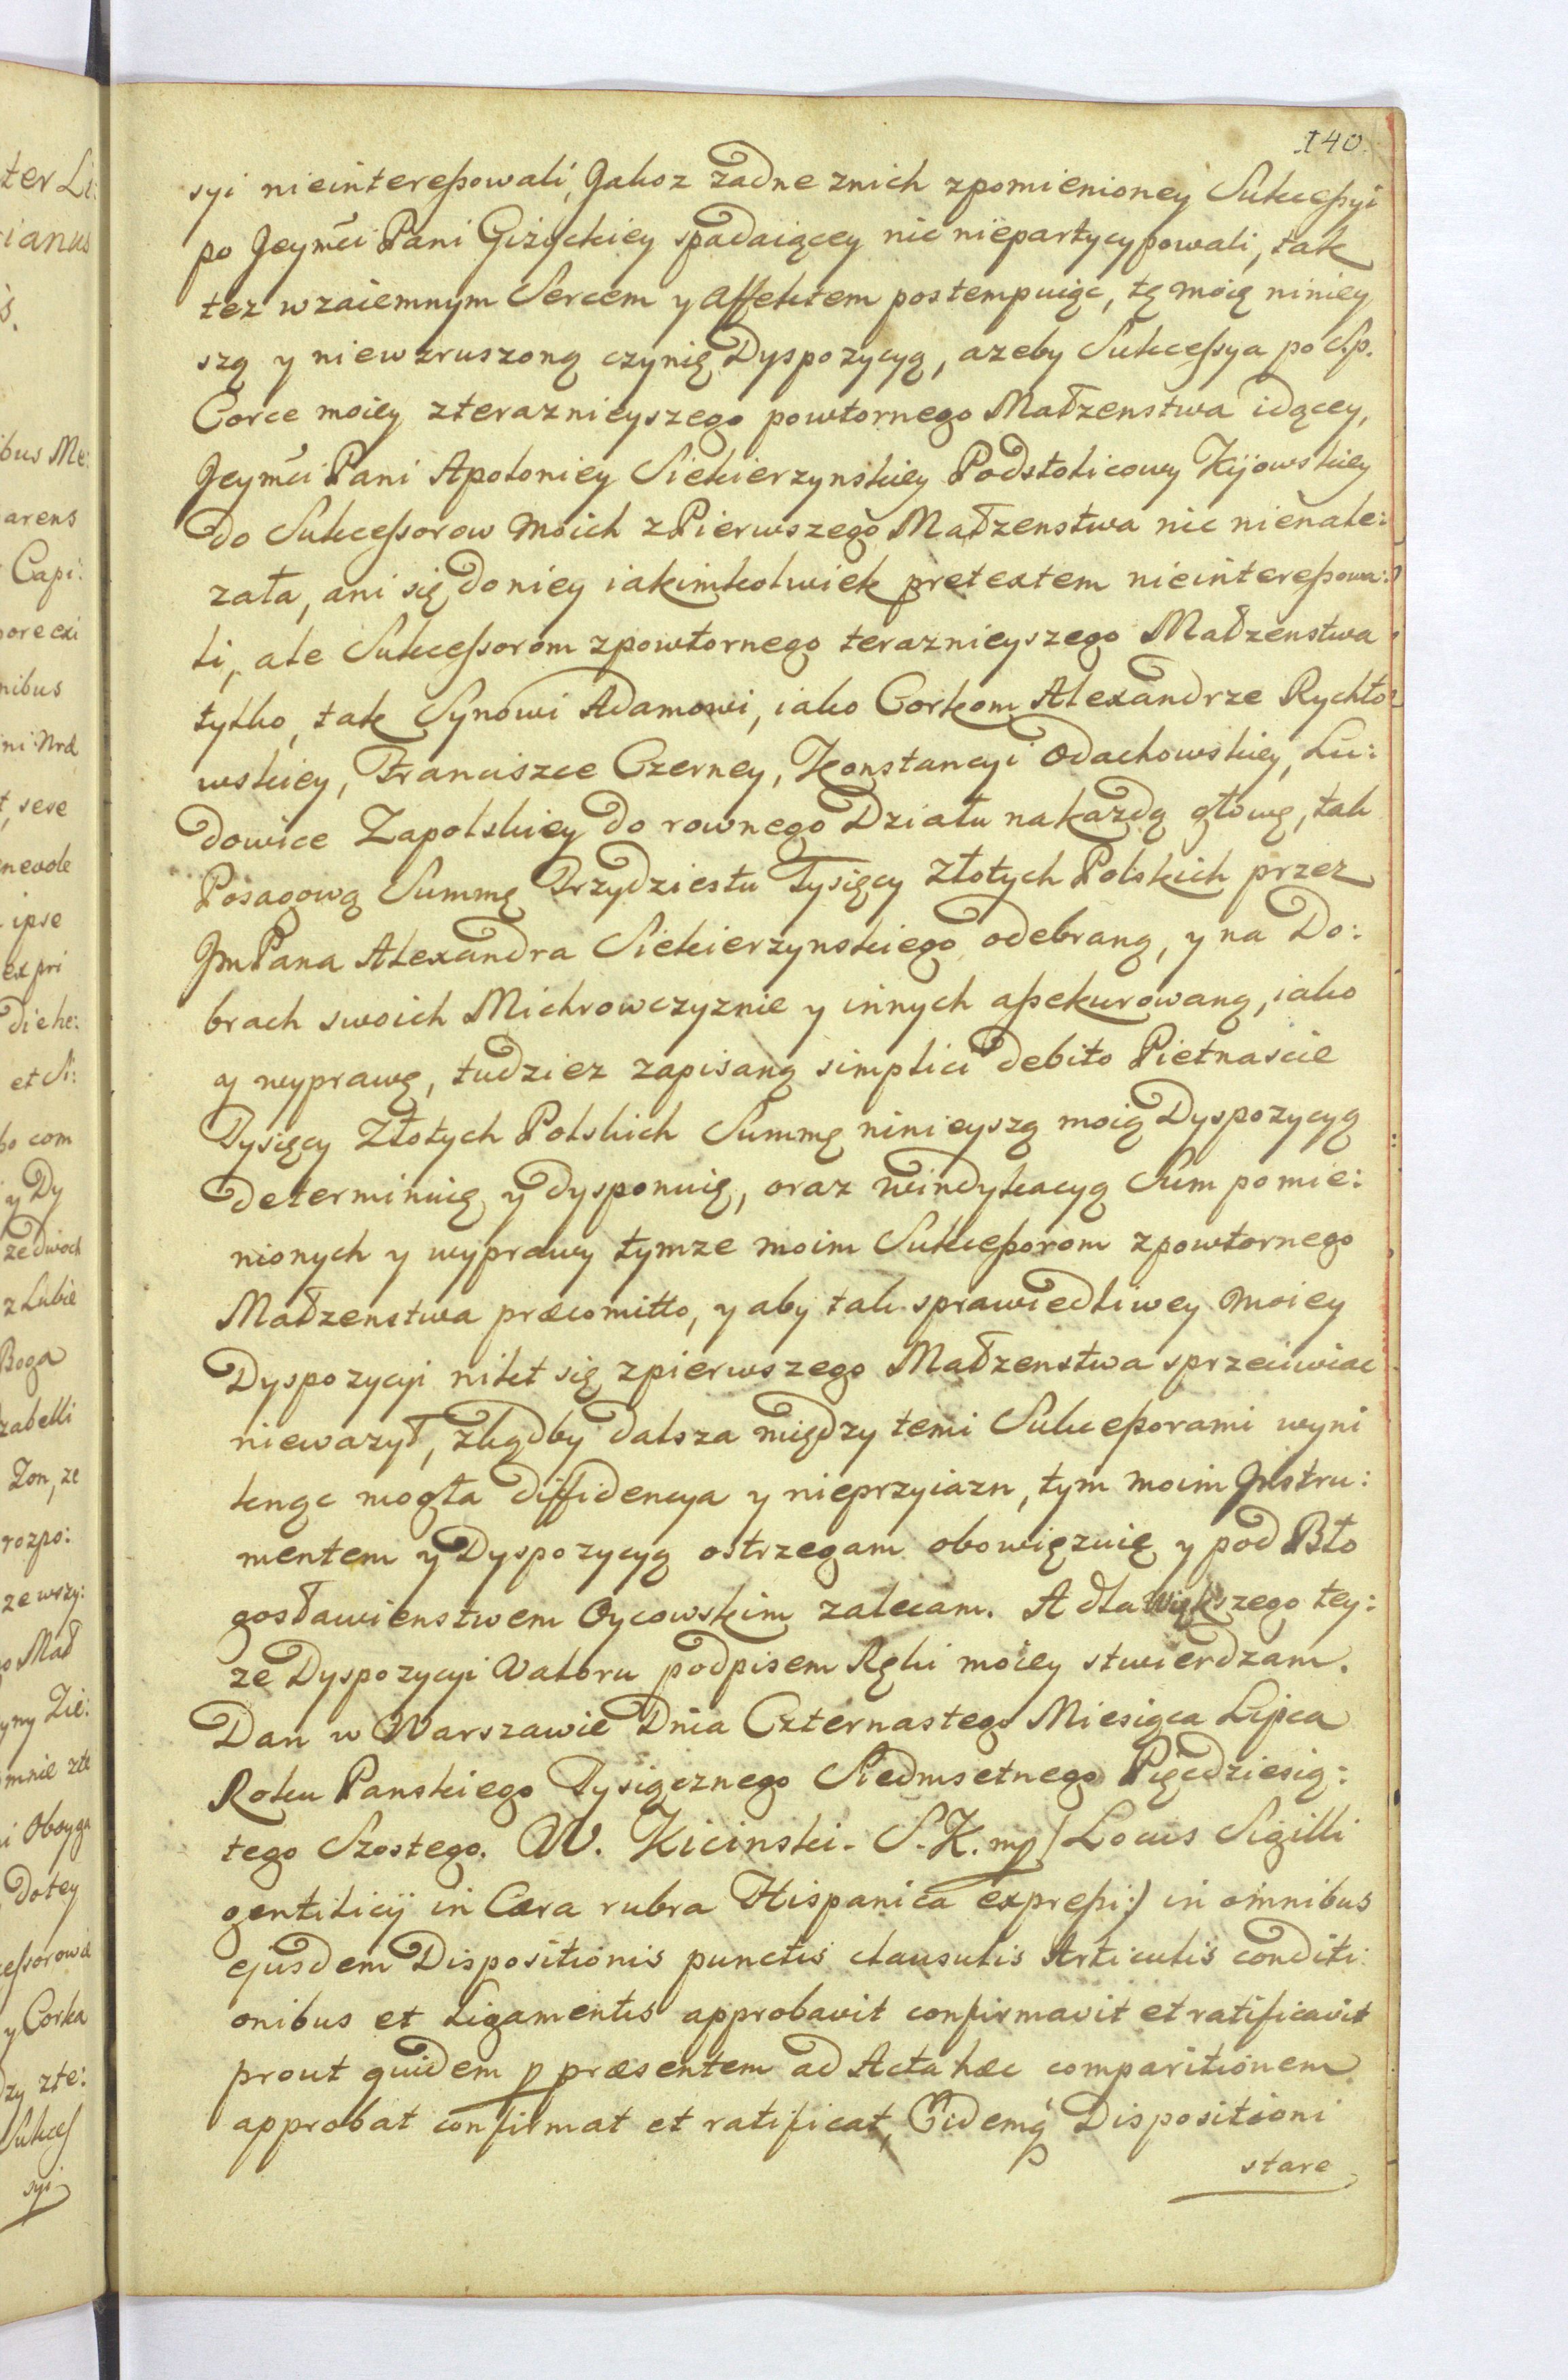 140.
syi nieintereßowali, Jakoz zadne znich zpomienioney Sukceßyi
po Jeymći Pani Giżyckiey spadaiącey nic niepartycypowali, tak
tez wzaiemnym Sercem y Affektem postempuiąc, tę moię niniey
szą y niewzruszoną czynię Dyspozycyą, azeby Sukceßya po S.p.
Corce moiey zteraznieyszego powtornego Małzenstwa idącey,
Jeymći Pani Apoloniey Siekierzynskiey Podstolicowy Kijowskiey
do Sukceßorow moich z Pierwszego Małzenstwa nic nienale:
zała, ani się do niey iakimkolwiek pretextem nieintereßowa:
li, ale Sukceßorom zpowtornego teraznieyszego Małzenstwa
tylko, tak Synowi Adamowi, iako Corkom Alexandrze Rychło
wskiey, Franciszce Czerney, Konstancyi Odachowskiey, Lu:
dowice Zapolskiey do rownego Działu nakazdą głowę, tak
Posagową Summę Trzydziestu Tysięcy Złotych Polskich przez
JmPana Alexandra Siekierzynskiego odebraną, y na Do:
brach swoich Michrowczyznie y innych aßekurowaną, iako
y wyprawę, tudziez zapisaną simplici debito Pietnascie
Tysięcy Złotych Polskich Summę ninieyszą moią Dyspozycyą
determinuię y dysponuię, oraz windykacyą Sum pomie:
nionych y wyprawy tymze moim Sukceßorom zpowtornego
Małzenstwa præcomitto, y aby tak sprawiedliwey moiey
Dyspozycyi nikt się zpierwszego Małzenstwa sprzeciwiac
niewazył, zkądby dalsza między temi Sukceßorami wyni
knąc mogła diffidencya y nieprzyiazn, tym moim Instru:
mentem y Dyspozycyą ostrzegam obowięzuię y pod Bło
gosławienstwem Oycowskim zalecam. A dla większego tey:
ze Dyspozycyi Waloru podpisem Ręki moiey stwierdzam.
Dan w Warszawie Dnia Czternastego Miesiąca Lipca
Roku Panskiego Tysiącznego Siedmsetnego Pięcdziesią:
tego Szostego. W. Kicinski. S.K. mp (Locus Sigilli
gentilicij in Cæra rubra Hispanica expreßi:) in omnibus
ejusdem Dispositionis punctis clausulis Articulis conditi:
onibus et Ligamentis approbavit confirmavit et ratificavit
prout quidem p præsentem ad Acta hæc comparitionem
approbat confirmat et ratificat, Eidemq Dispositioni
stare